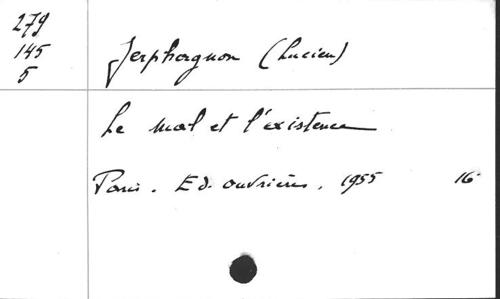 279
145
5
Jerphagnon (Lucien)
Le mal et l'existence
Paris. Ed. ouvrières, 1955 16